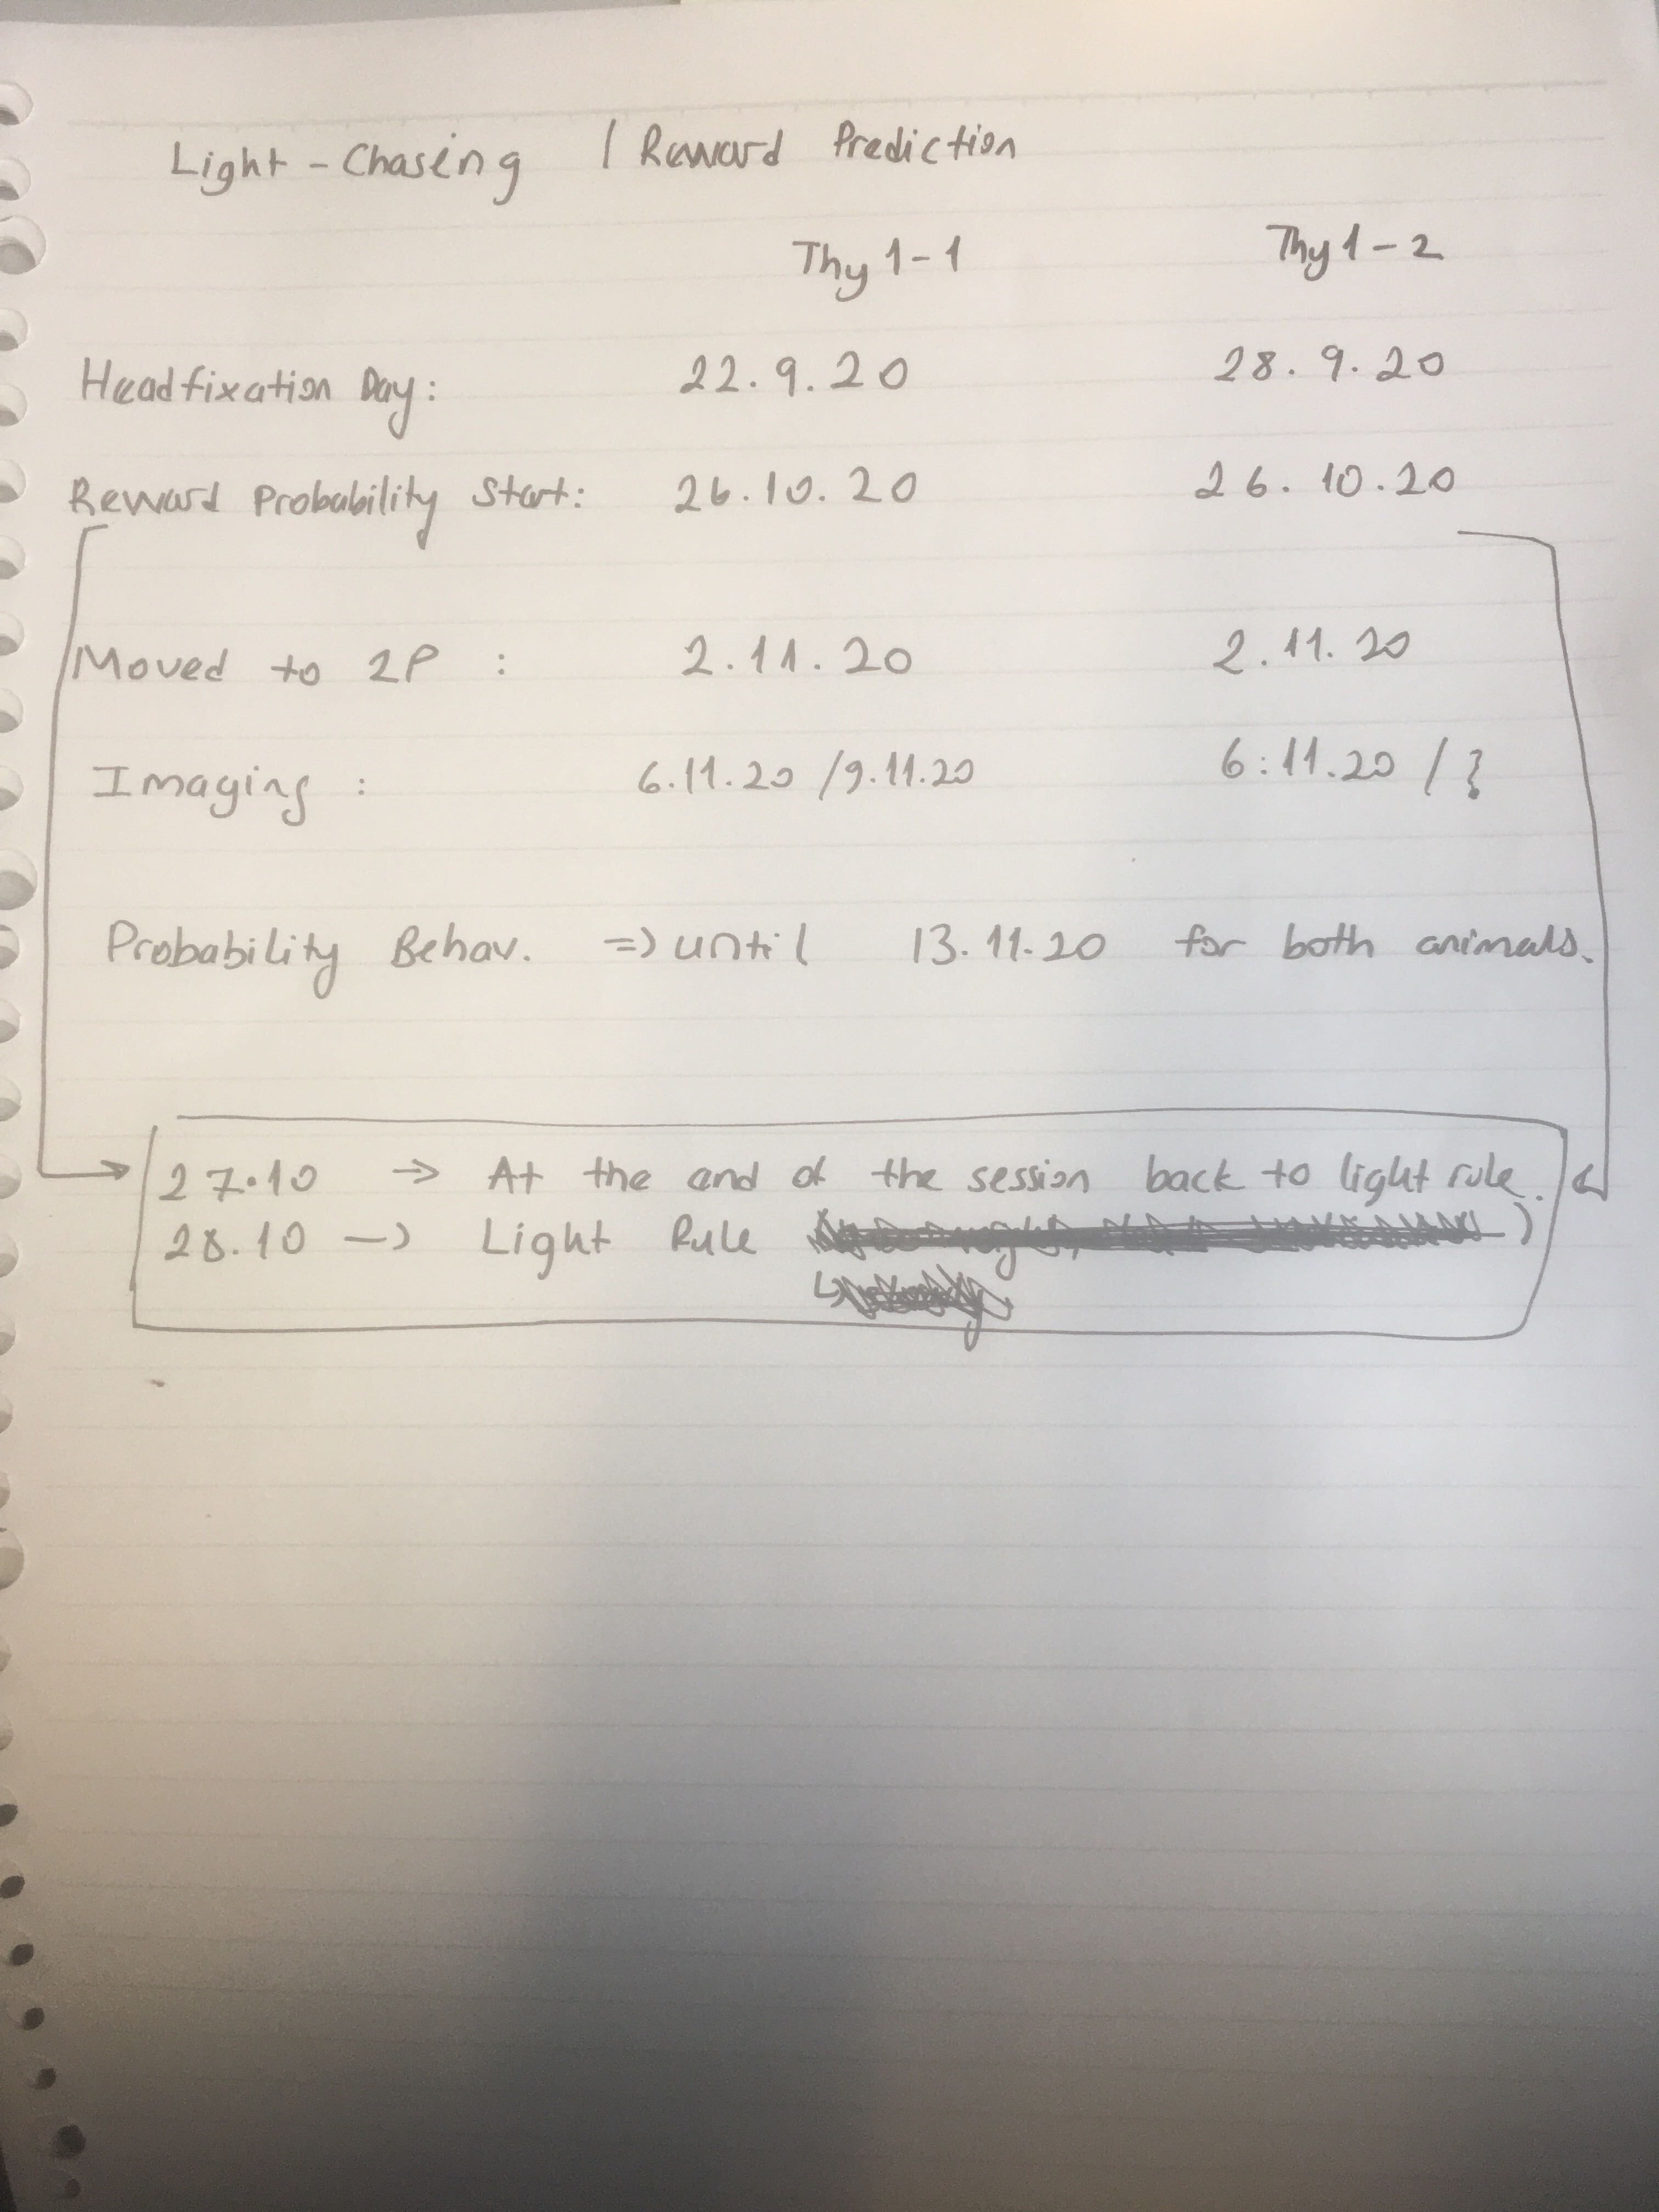 Light - Chasing / Reward Prediction
Thy 1-1 Thy 1-2
Headfixation Day: 22.9.20 28.9.20
Reward Probability Start: 26.10.20 26.10.20
Moved to 2P : 2.11.20 2.11.20
Imaging : 6.11.20 /9.11.20 6.11.20 / ?
Probability Behav. => until 13.11.20 for both animals.
27.10 => At the end of the session back to light rule.
28.10 -> Light Rule )